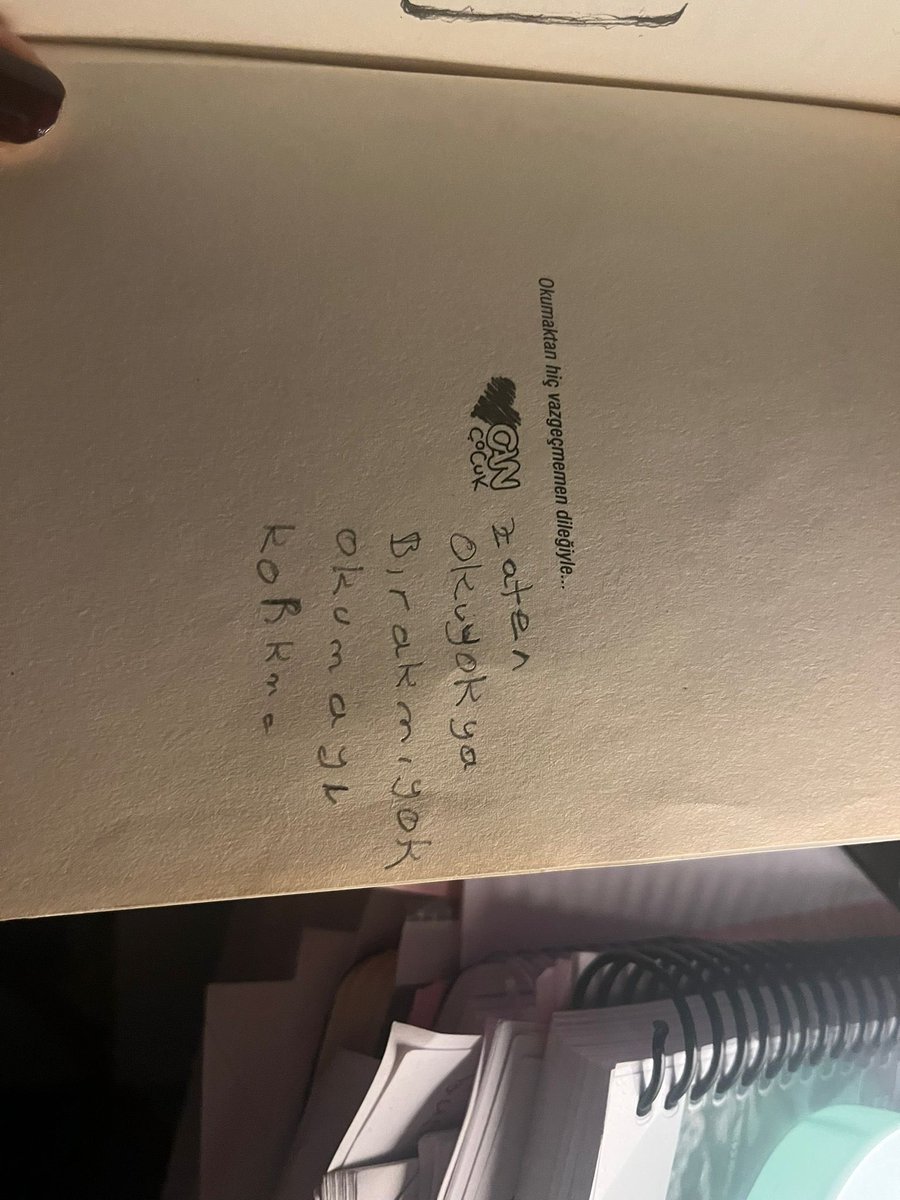 Okumaktan hiç vazgeçmemen dileğiyle...
CAN
ÇOCUK
zaten
okuyokya
Bırakmıyok
okumayı
koRkma